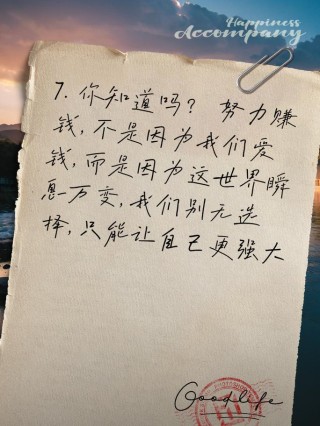 Happiness
Accompany
7. 你知道吗? 努力赚
钱, 不是因为我们爱
钱, 而是因为这世界瞬
息万变, 我们别无选
择, 只能让自己更强大
Goodlife